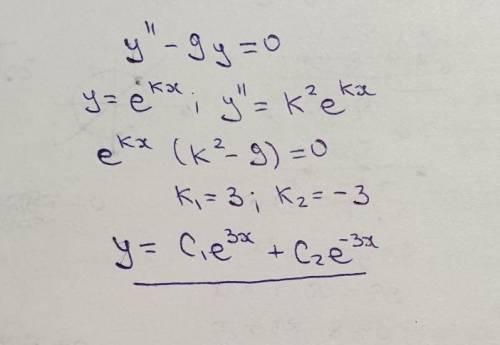 y'' - 9y = 0
y = e^{kx}; y'' = k² e^{kx}
e^{kx} (k² - 9) = 0
k₁ = 3; k₂ = -3
y = C₁e^{3x} + C₂e^{-3x}